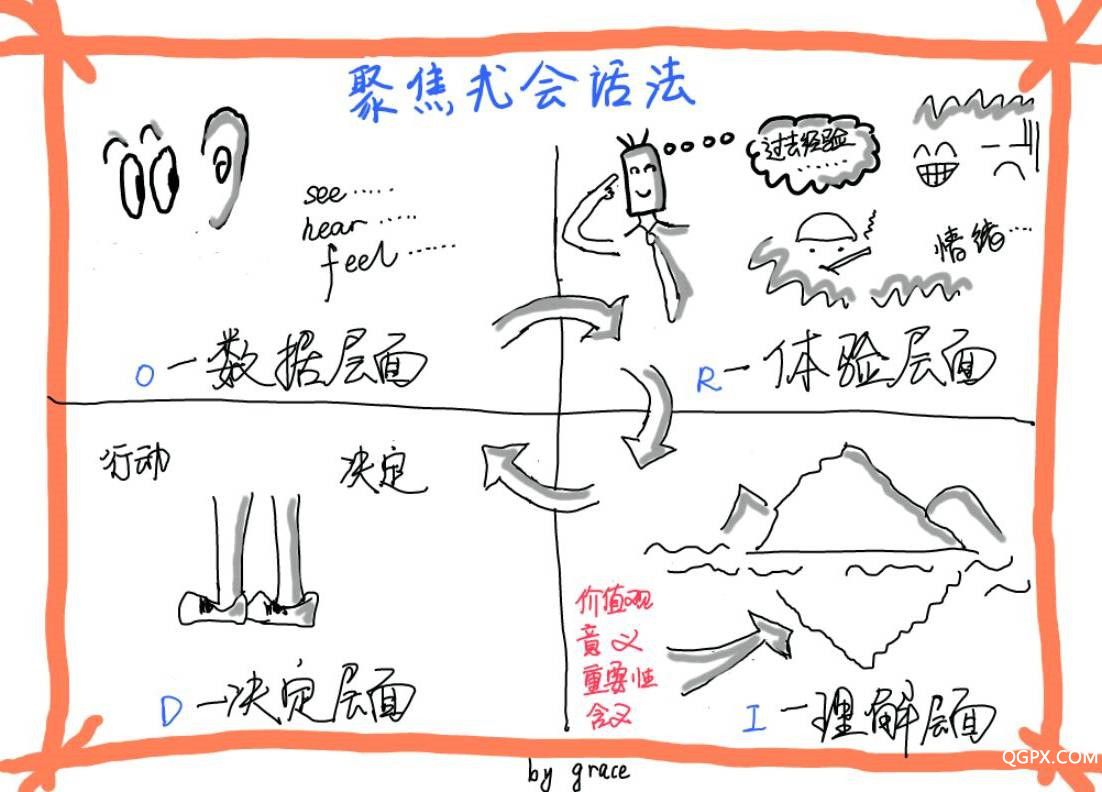 聚焦式会话法
see……
hear……
feel……
O一数据层面
过去经验
……
情绪…
R一体验层面
行动
决定
D一决定层面
价值观
意义
重要性
含义
I一理解层面
by grace
QGPX.COM